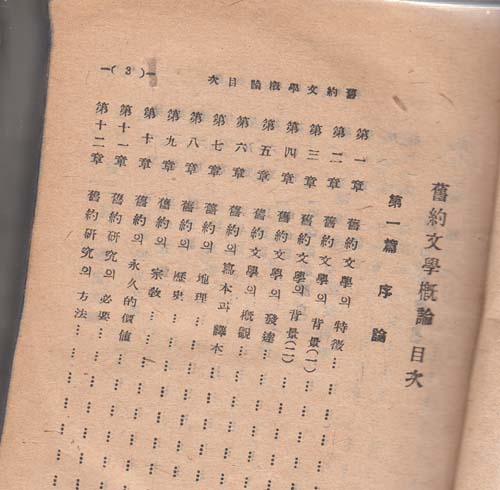 舊約文學槪論 目次
—( 3 )—
舊約文學槪論 目次
第一篇 序論
第一章 舊約文學의 特徵………
第二章 舊約文學의 背景(一)………
第三章 舊約文學의 背景(二)………
第四章 舊約文學의 發達………
第五章 舊約文學의 槪觀………
第六章 舊約의 寫本과 譯本………
第七章 舊約의 地理………
第八章 舊約의 歷史………
第九章 舊約의 宗敎………
第十章 舊約의 永久的價値………
第十一章 舊約研究의 必要………
第十二章 舊約研究의 方法………